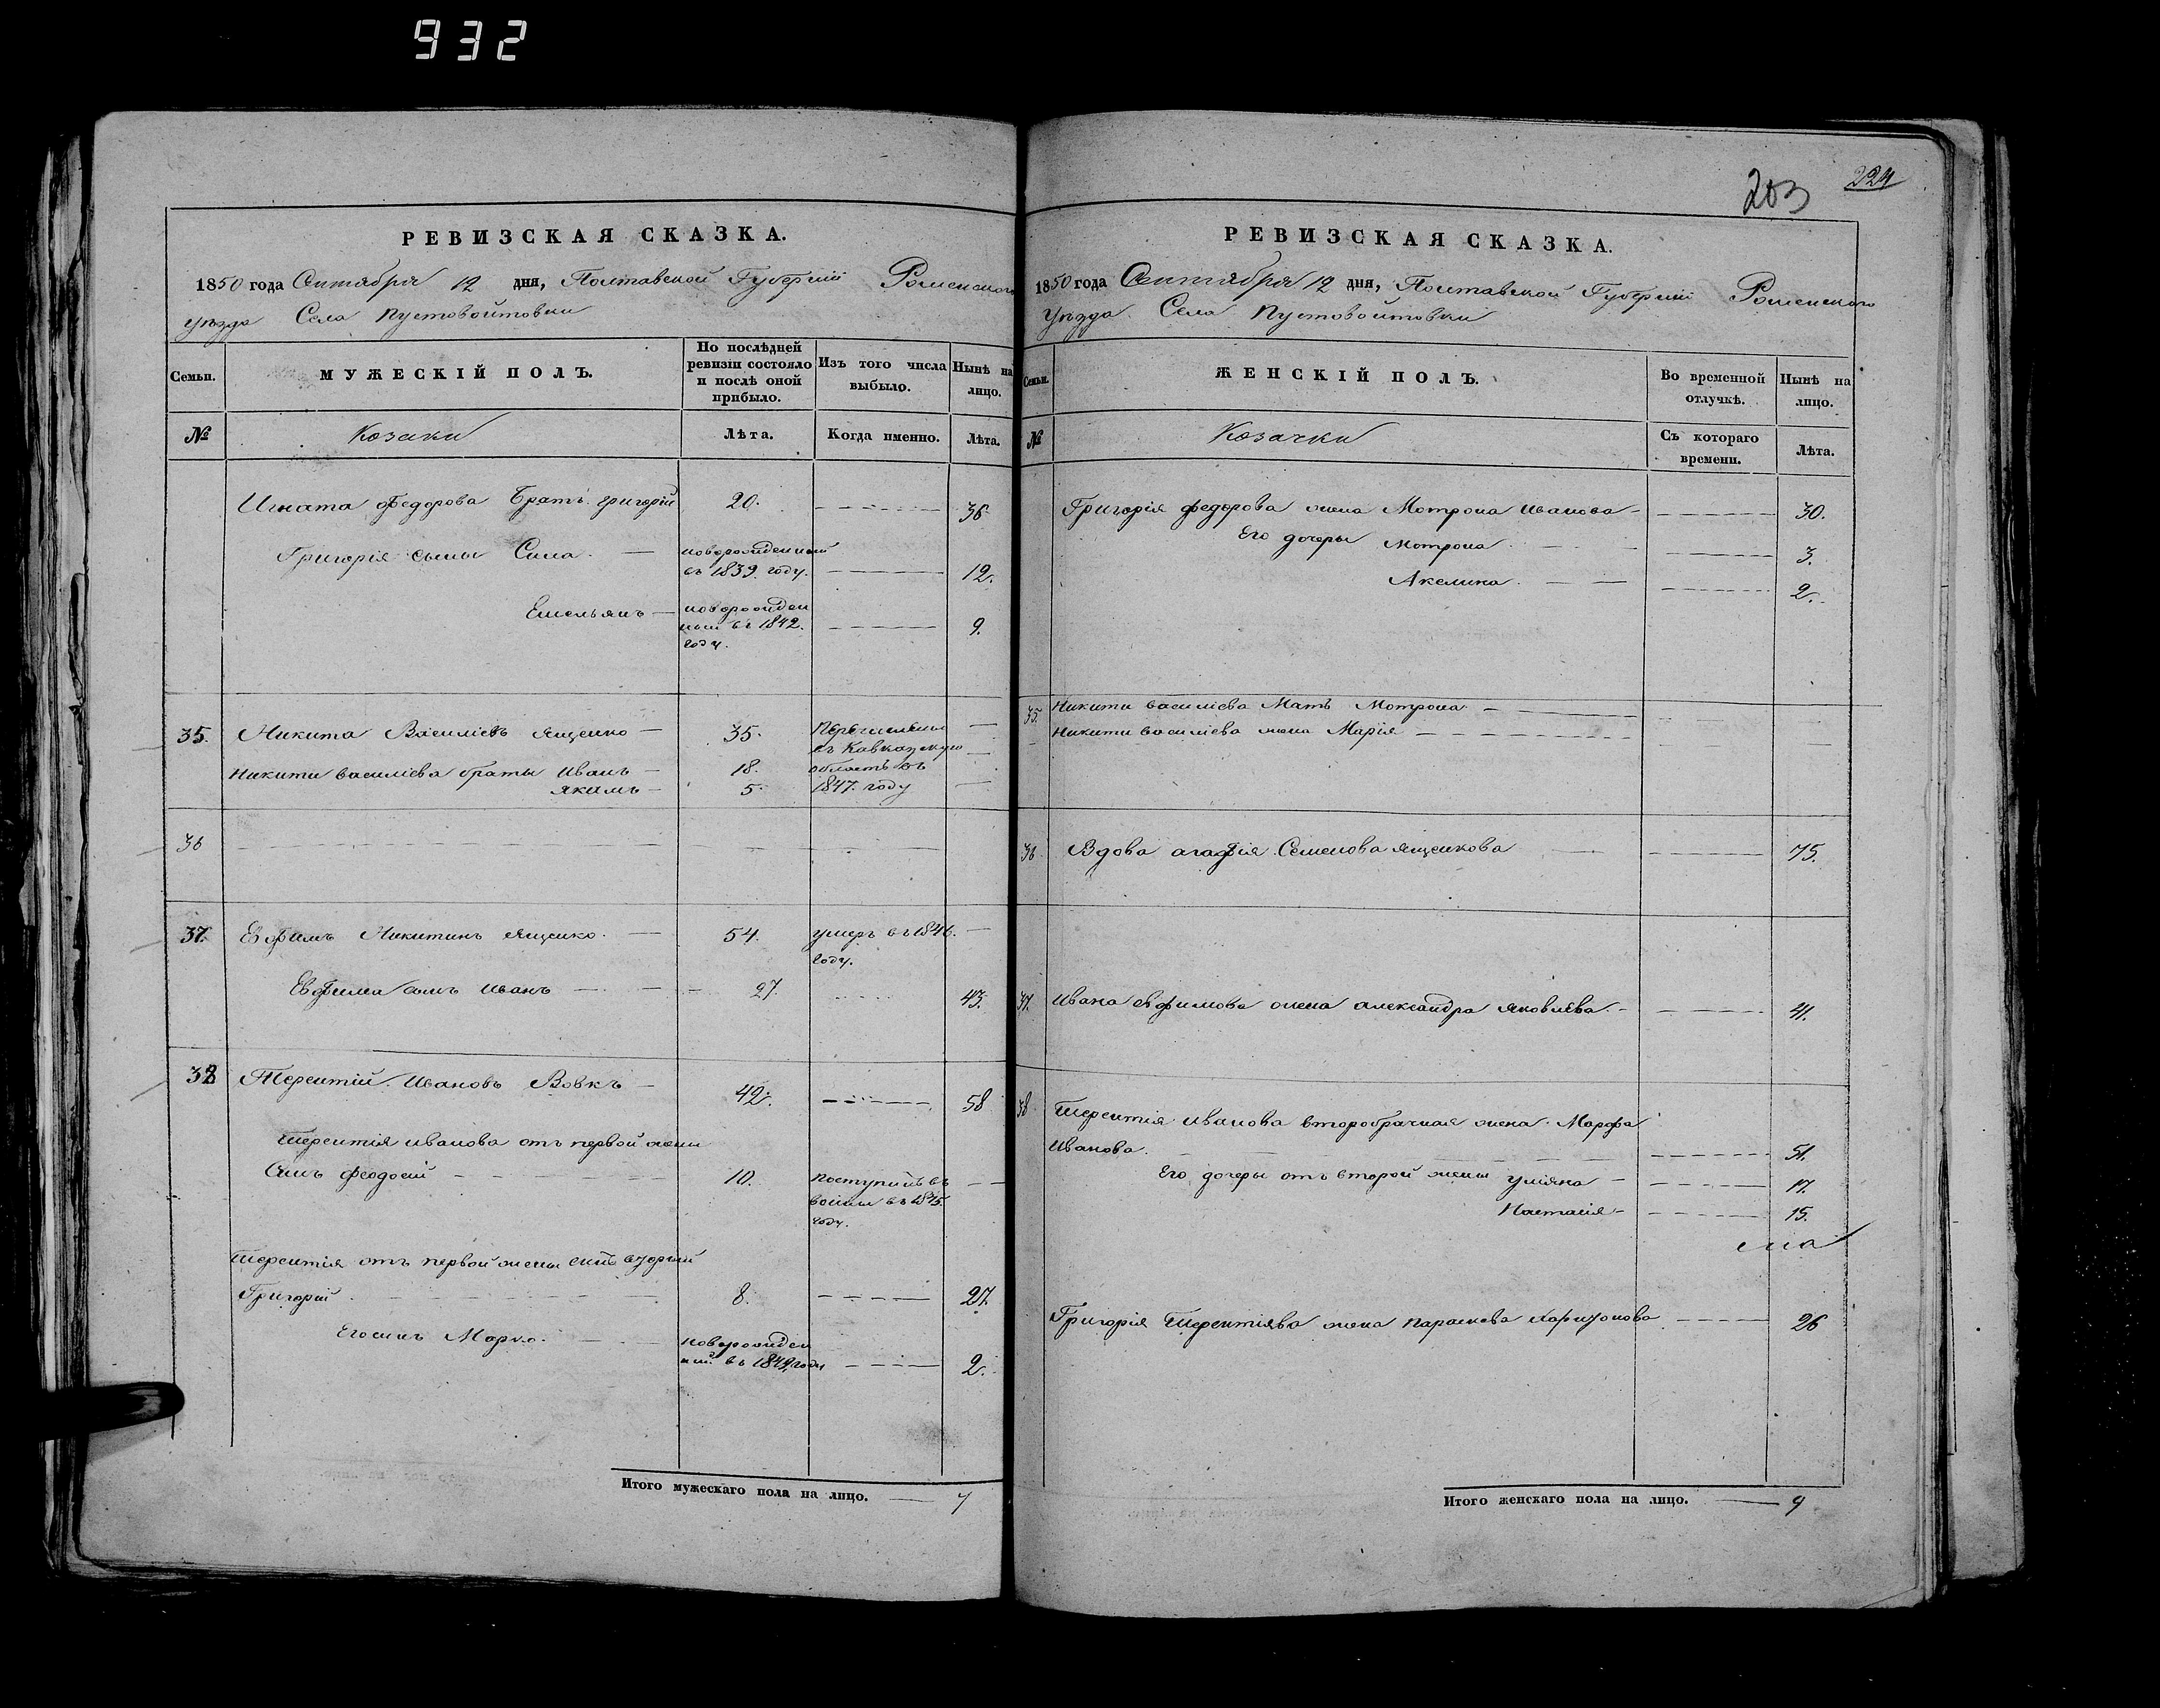 932
203
224
РЕВИЗСКАЯ СКАЗКА.
1850 года Сентября 12 дня, Полтавской Губерніи Роменского
уѣзда Села Пустовойтовки
Семьи.
МУЖЕСКІЙ ПОЛЪ.
По послѣдней ревизіи состояло и послѣ оной прибыло.
Изъ того числа выбыло.
Нынѣ на лицо.
№
Козаки
Лѣта.
Когда именно.
Лѣта.
Игната Федорова Братъ григорій 20. 36
Григорія сыны Сила новорожденный
въ 1839 году. 12.
Емельянъ новорожден
ный въ 1842. 9.
году.
35. Никита Василіевъ Ященко 35. Перечислены
въ Кавказскую
Никити василіева браты Иванъ 18. область въ
Якимъ 5. 1847. году
36
37. Евфимъ Никитинъ Ященко. 54. умеръ въ 1846.
году.
Евфима сынъ Иванъ 27. 43.
38 Терентій Ивановъ Вовкъ 42. 58
Терентія иванова отъ первой жены
Сынъ феодосій 10. поступилъ въ
году.
Терентія отъ первой жены синъ вторый
Григорій 8. 27.
Его синъ Марко. новорожден
ний въ 1849 году 2.
Итого мужескаго пола на лицо. 7
РЕВИЗСКАЯ СКАЗКА.
1850 года Сентября 12 дня, Полтавской Губерніи Роменского
уѣзда Села Пустовойтовки
Семьи.
ЖЕНСКІЙ ПОЛЪ.
Во временной отлучкѣ.
Нынѣ на лицо.
№
Козачки
Съ котораго времени.
Лѣта.
Григорія федорова жена Мотрона Иванова 30.
Его дочеры Мотрона 3.
Акелина. 2.
35. Никити василіева Мать Мотрона
Никити василіева жена Марія
36. Вдова агафія Семенова Ященкова 75.
37. Ивана евфимова жена александра Яковлева. 41.
38 Терентія иванова второбрачная жена Марфа
Иванова. 51.
Его дочеры отъ второй жены уліяна 17.
Настасія 15.
Григорія Терентіява жена параскева Харитонова 26
Итого женскаго пола на лицо. 9